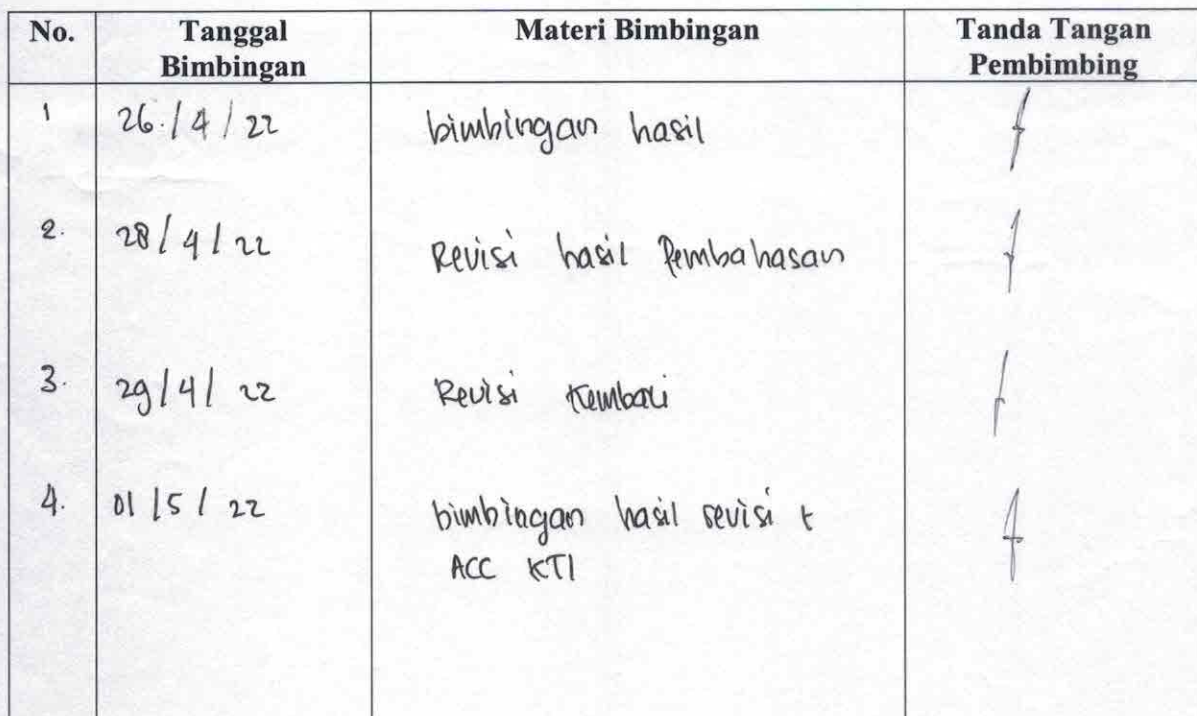 No. Tanggal Bimbingan Materi Bimbingan Tanda Tangan Pembimbing
1 26/4/22 bimbingan hasil
2. 28/4/22 Revisi hasil Pembahasan
3. 29/4/22 Revisi Kembali
4. 01/5/22 bimbingan hasil revisi +
ACC KTI